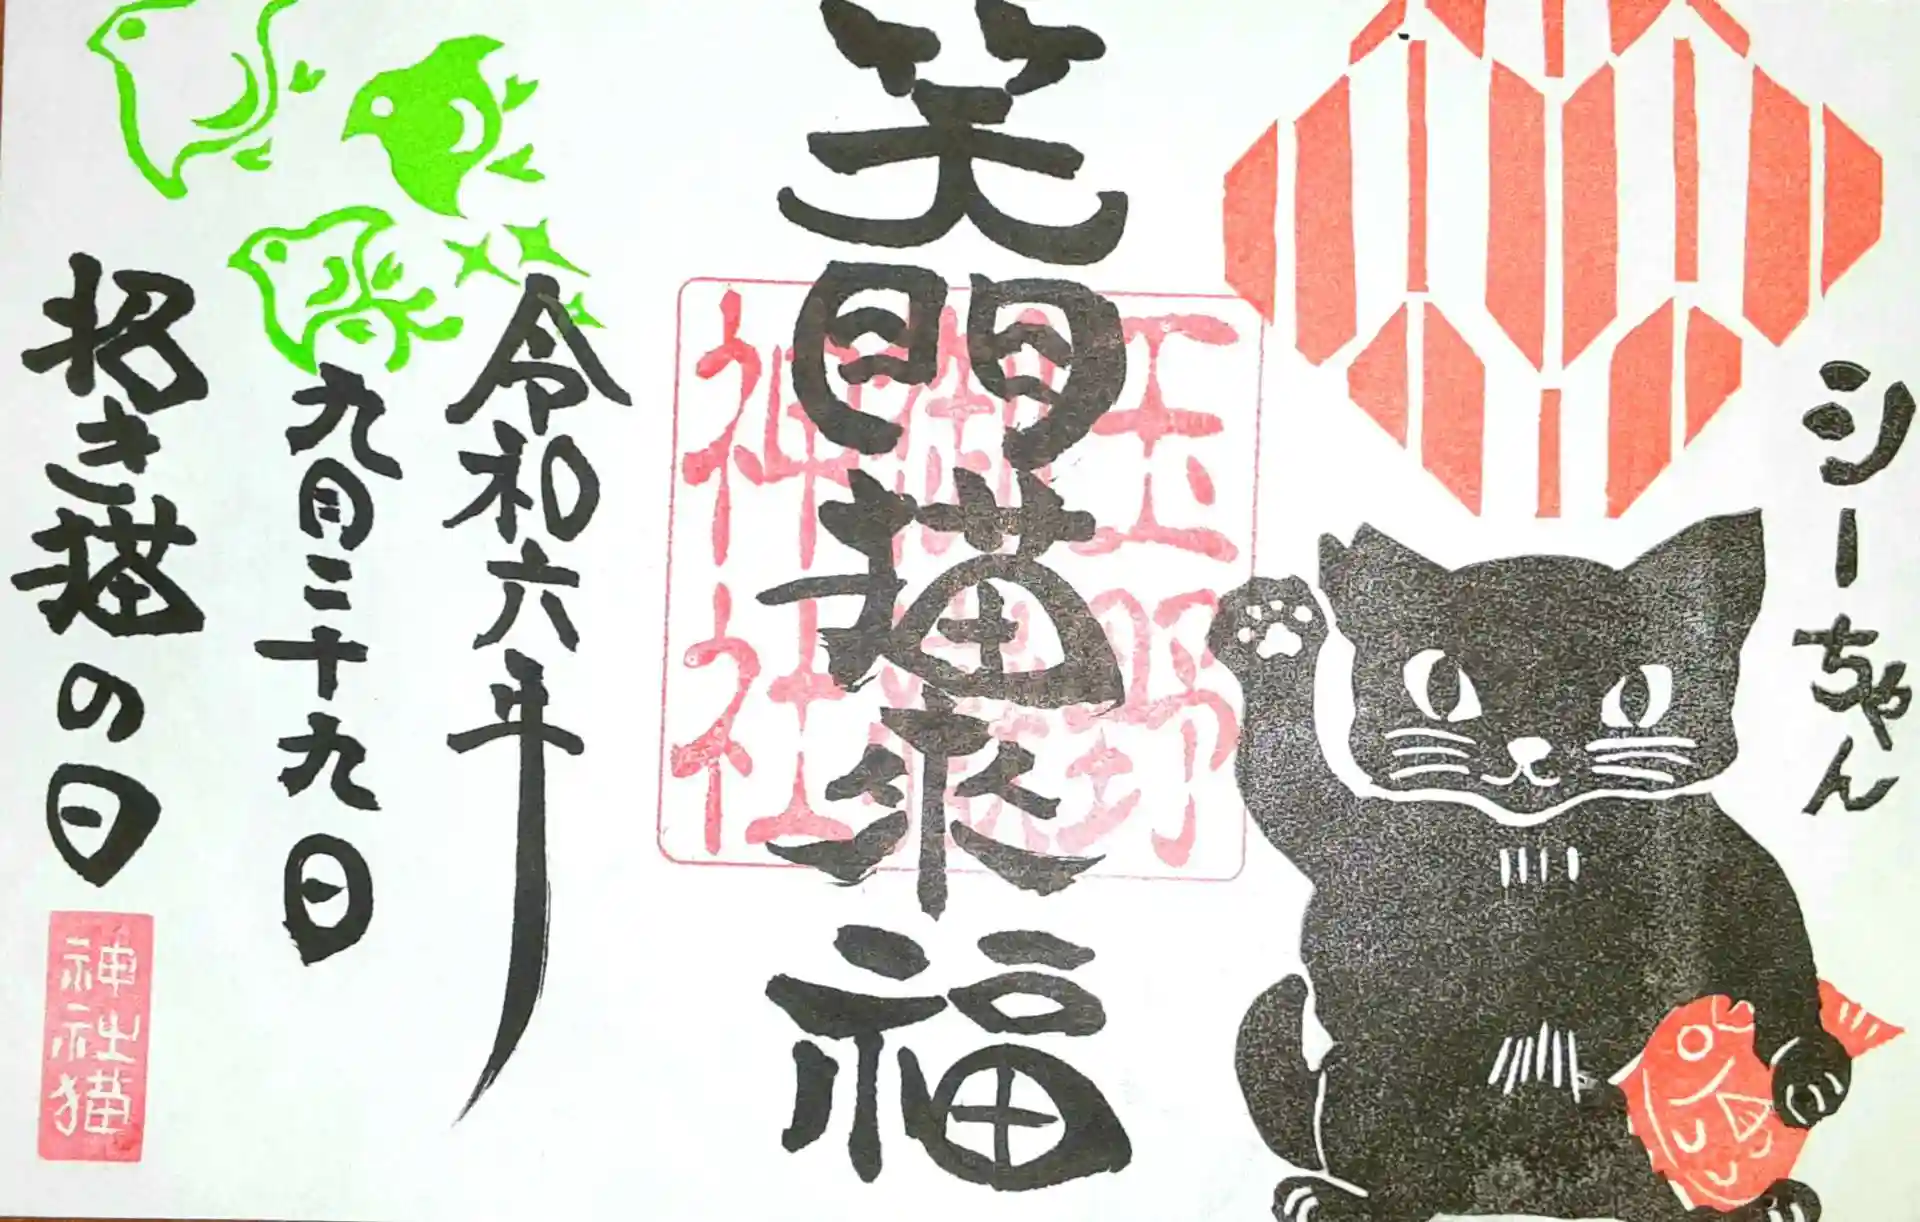 シーちゃん
笑門猫來福
玉野
御嶽
神社
令和六年
九月二十九日
招き猫の日
神社猫